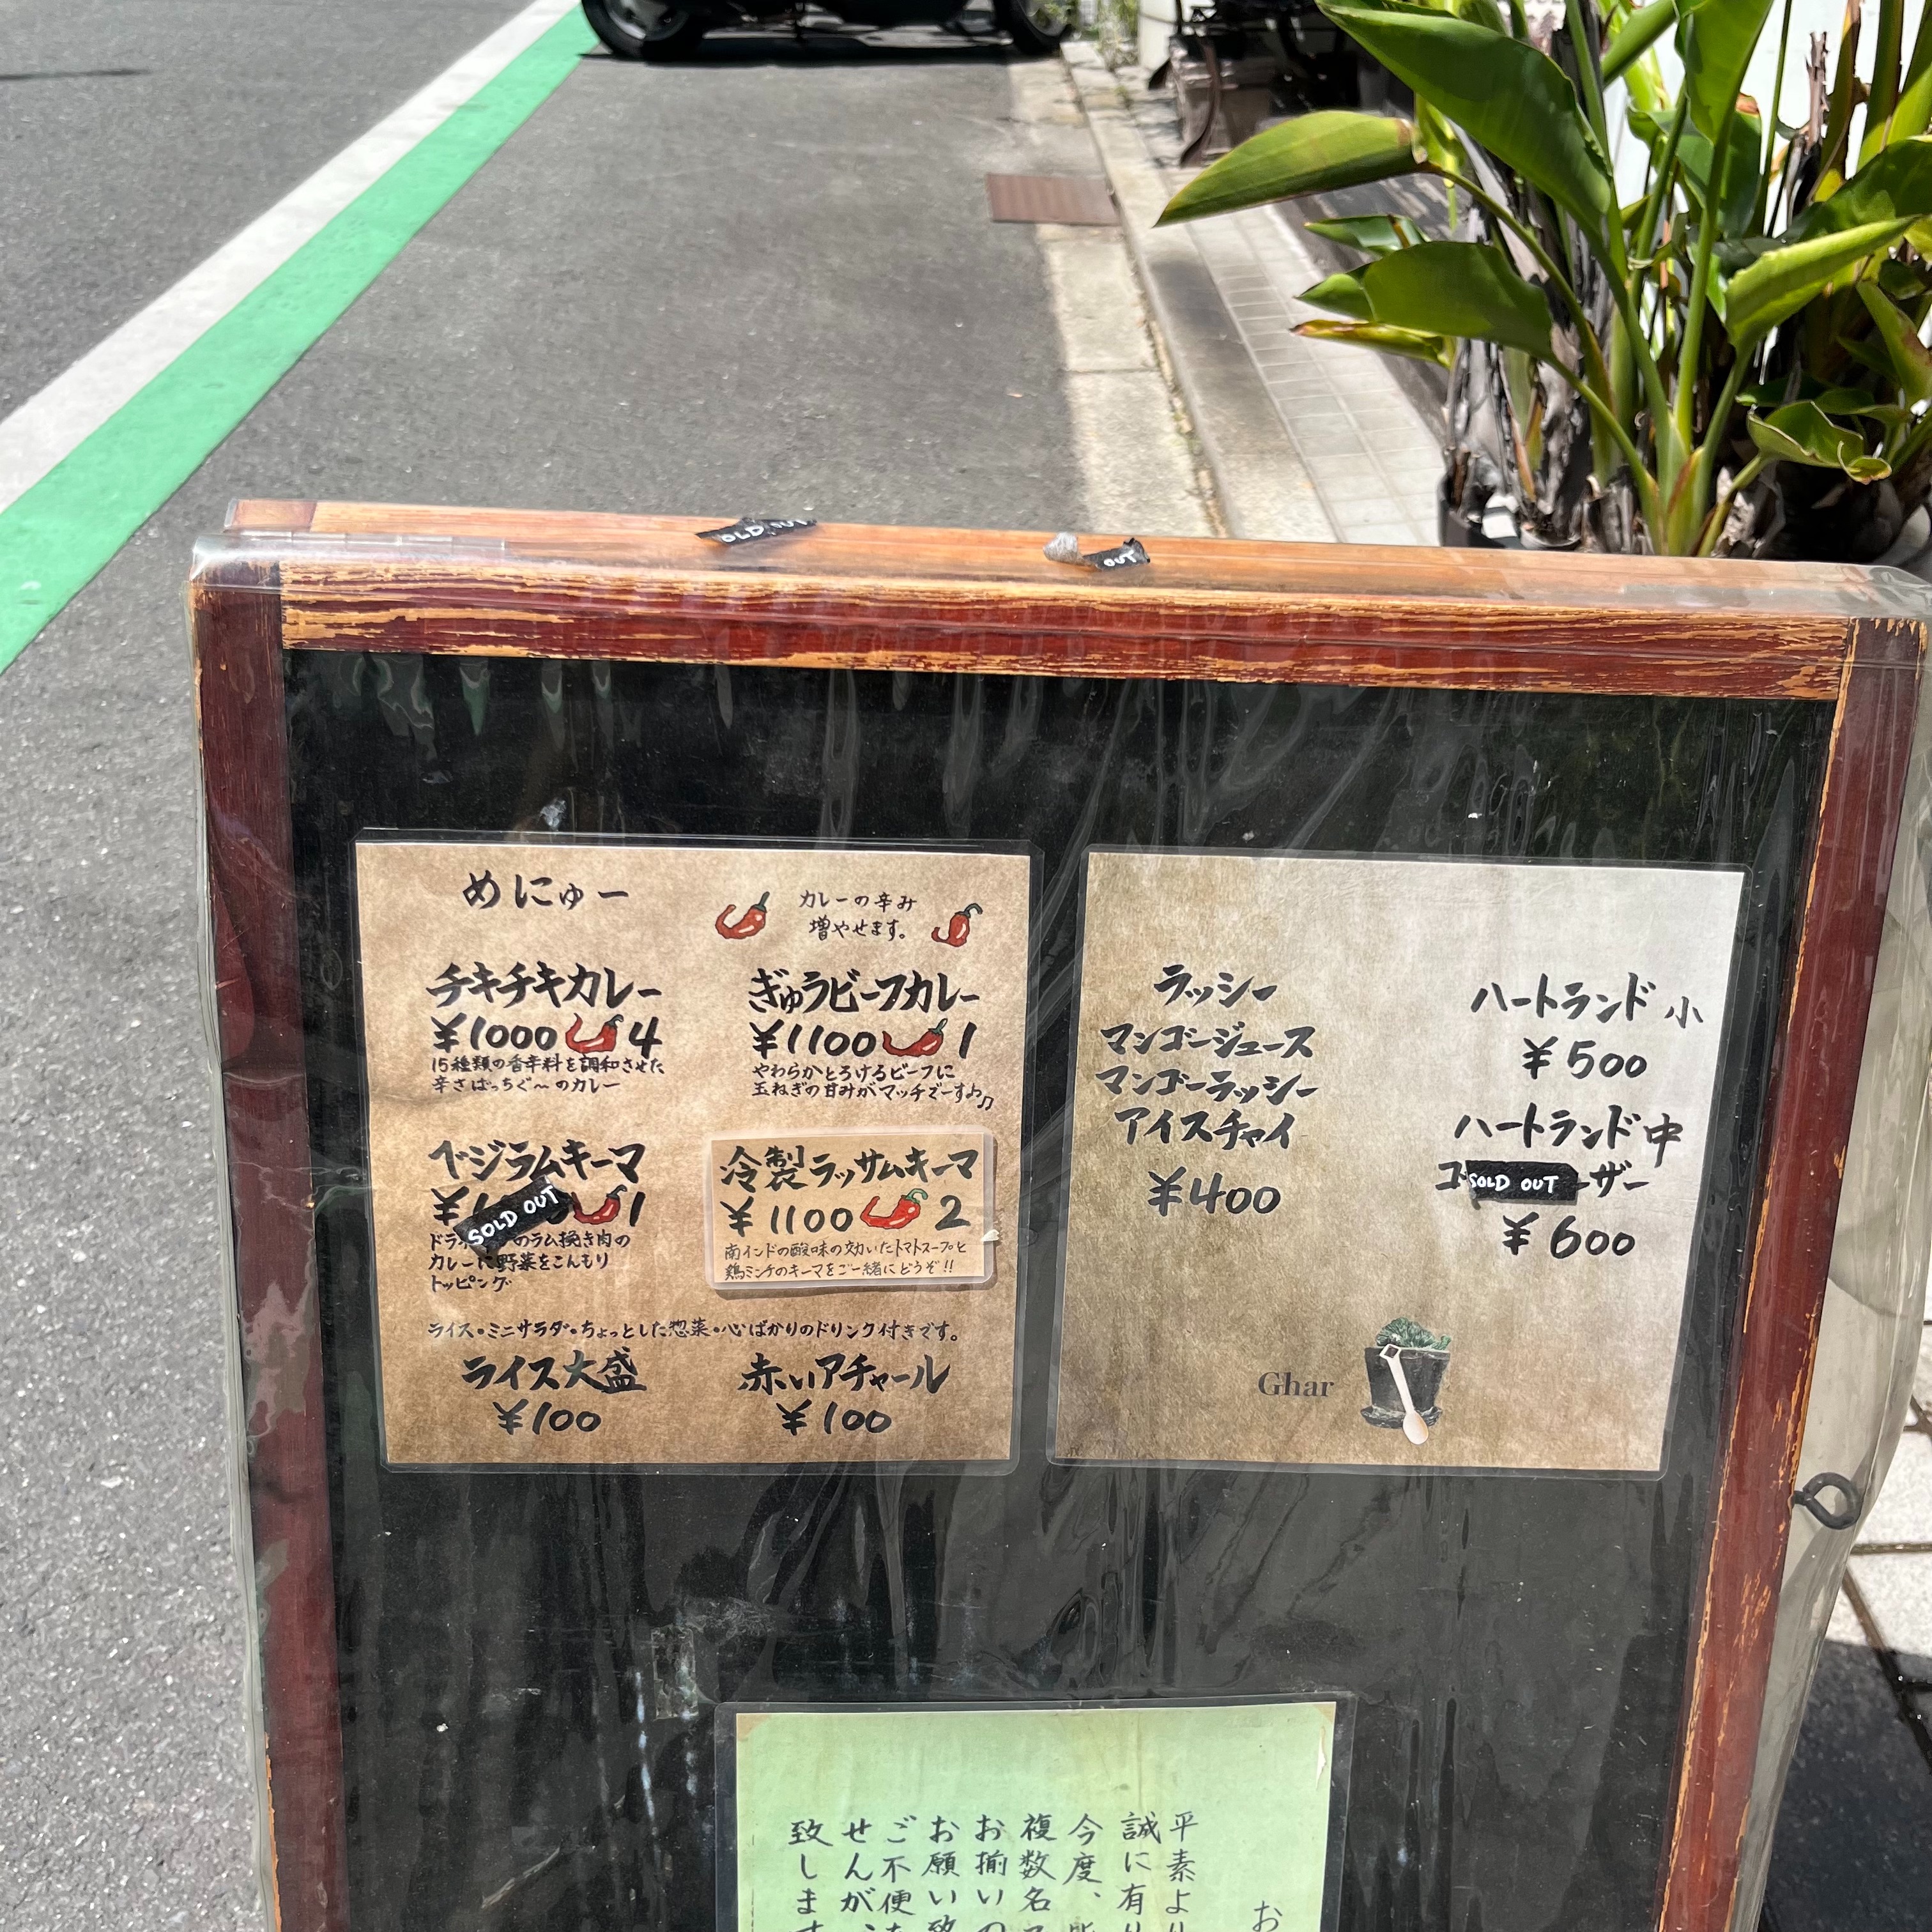 SOLD OUT
OUT
めにゅー
カレーの辛み
増やせます。
チキチキカレー
¥1000 4
15種類の香辛料を調和させた
辛さばっちぐ〜のカレー
ぎゅうビーフカレー
¥1100 1
やわらかとろけるビーフに
玉ねぎの甘みがマッチでーす♪♫
ベジラムキーマ
¥1 1
SOLD OUT
ドラ のラム挽き肉の
カレーに野菜をこんもり
トッピング
冷製ラッサムキーマ
¥1100 2
南インドの酸味の効いたトマトスープと
鶏ミンチのキーマをご一緒にどうぞ!!
ライス・ミニサラダ・ちょっとした惣菜・心ばかりのドリンク付きです。
ライス大盛
¥100
赤いアチャール
¥100
ラッシー
マンゴージュース
マンゴーラッシー
アイスチャイ
¥400
ハートランド 小
¥500
ハートランド 中
SOLD OUT
ーザー
¥600
Ghar
お
平素より
誠に有り
今度、
複数名
お揃いの
お願い致
ご不便
せんが、
致します